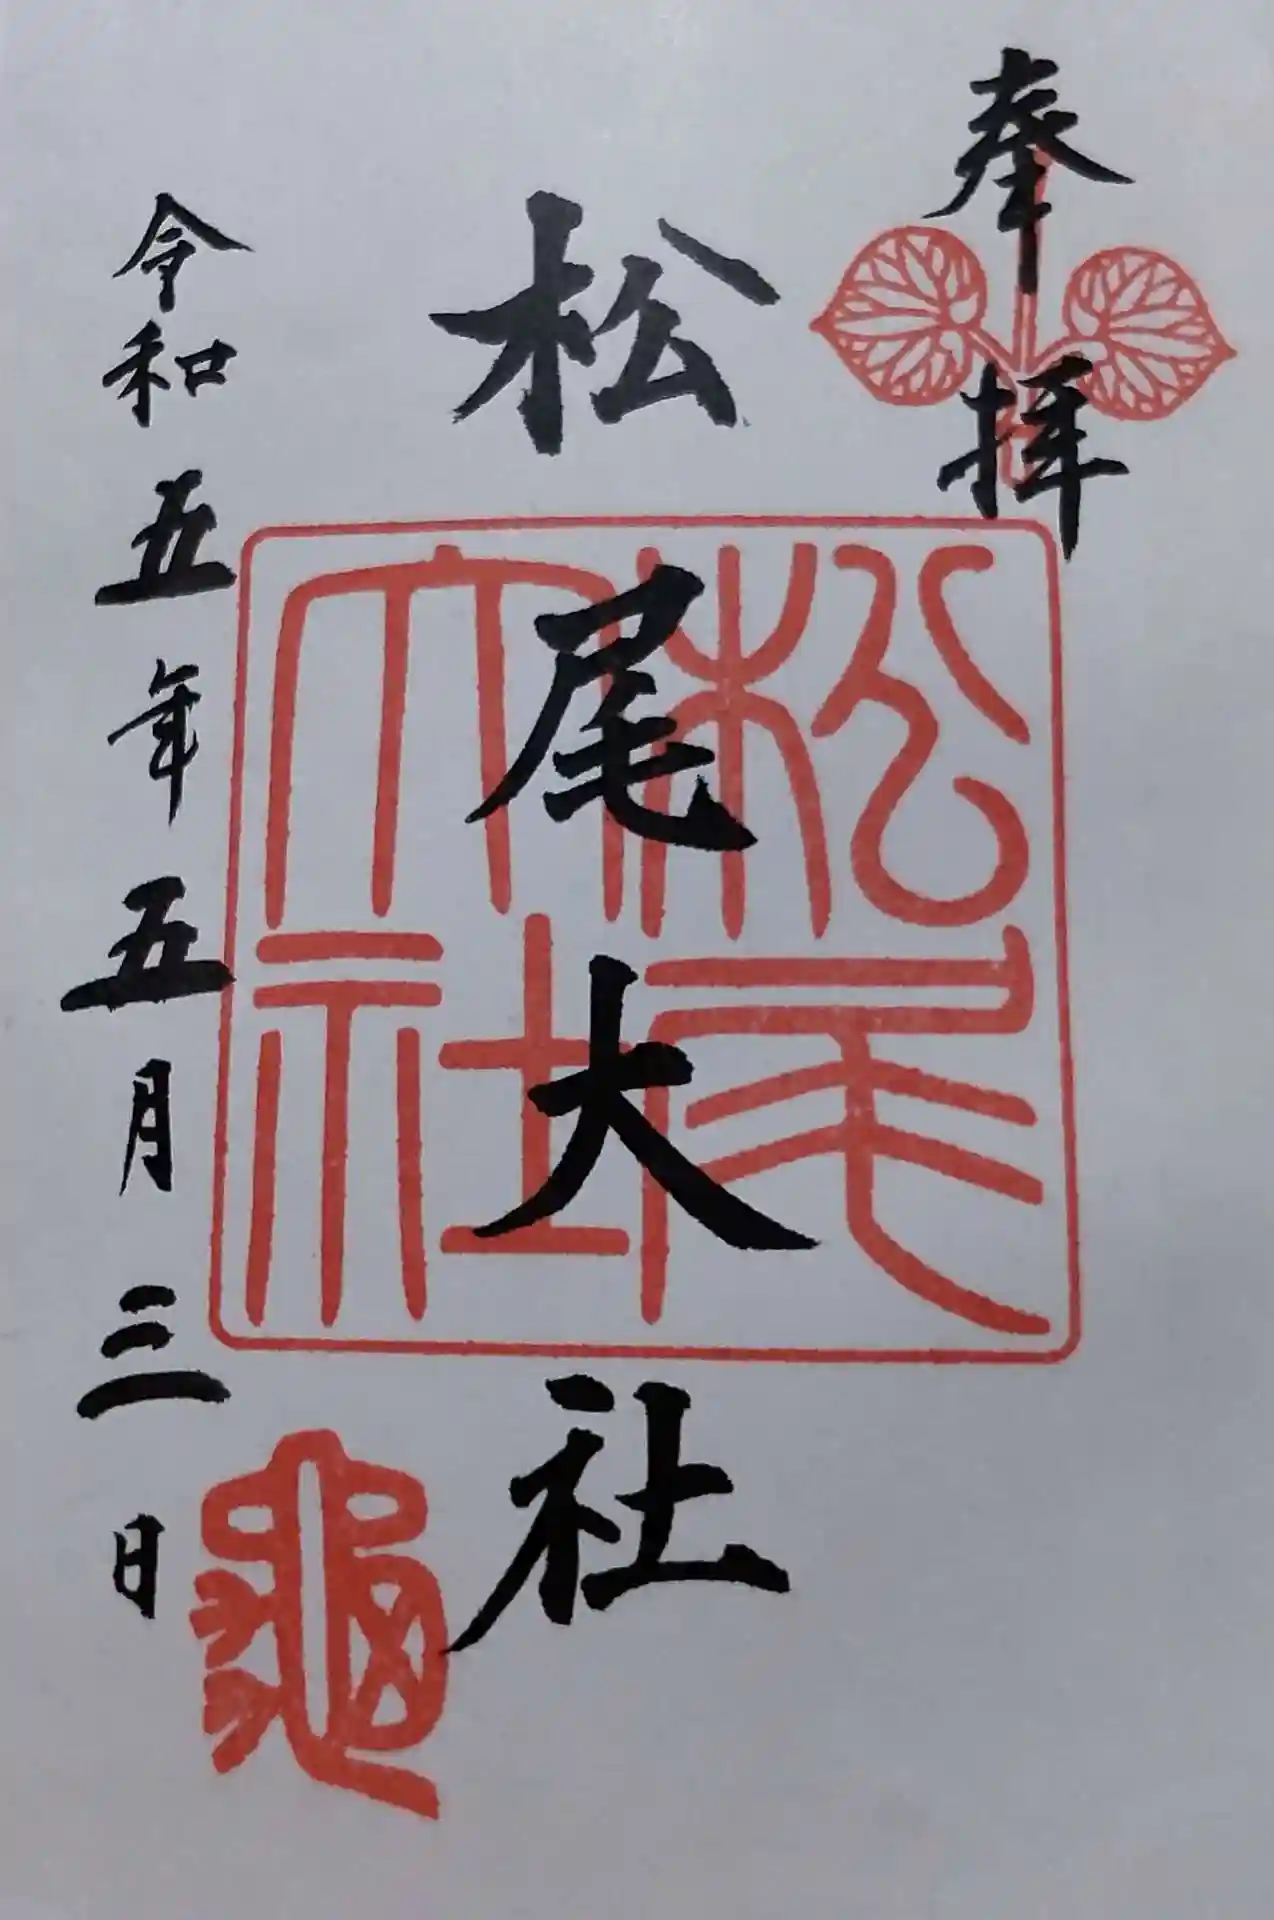 奉拝
松尾大社
松尾大社
令和五年五月三日
龜